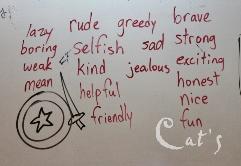 lazy rude greedy brave
boring selfish sad strong
weak kind jealous exciting
mean helpful honest
friendly nice
fun
Cat's